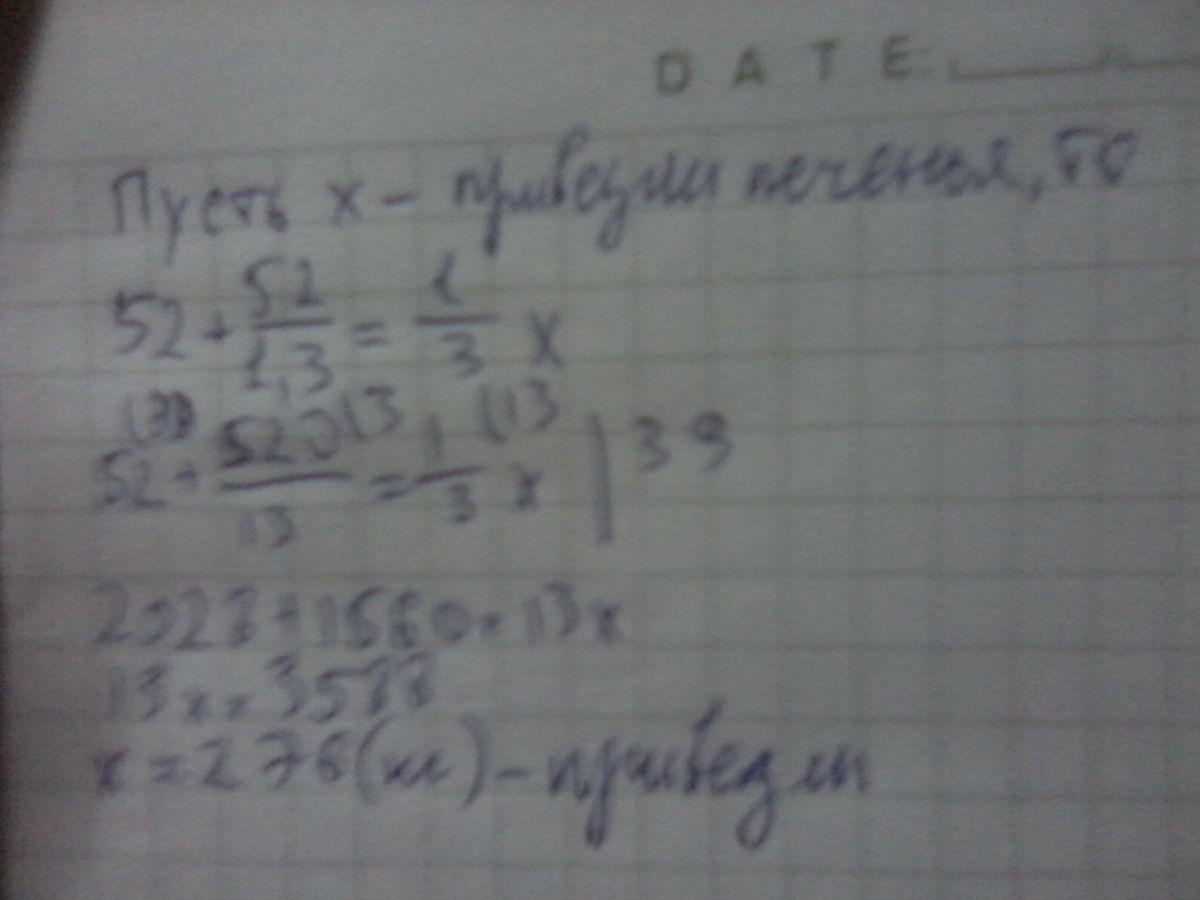 DATE
Пусть x - привезли печенья, то
52 + 52/1,3 = 1/3 x
52 (39 + 520 (3/13 = 1 (13/3 x | 39
2028 + 1560 = 13x
13x = 3588
x = 276 (кг) - привезли